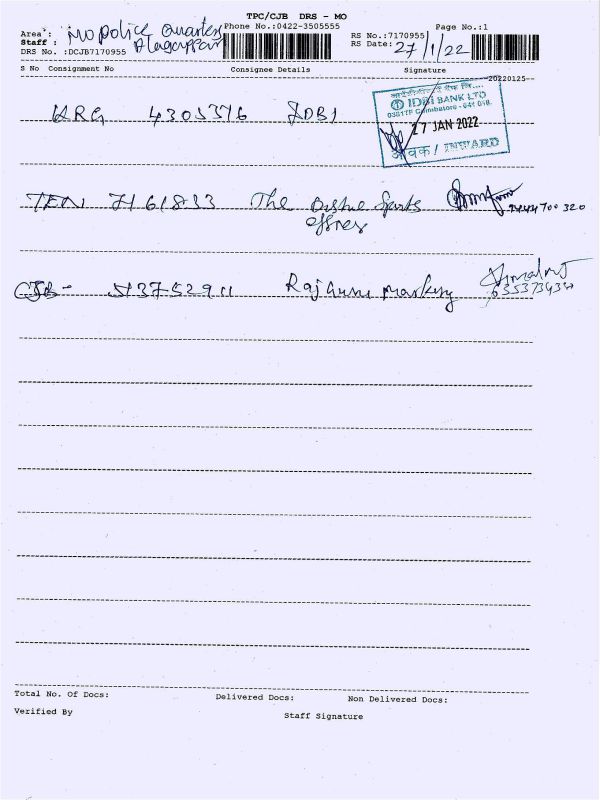 TPC/CJB DRS - MO
Area : MO police Quarters
Phone No.:0422-3505555
RS No.:7170955
Page No.:1
Staff : Alagappan
RS Date: 27/1/22
DRS No. :DCJB7170955
S No Consignment No Consignee Details Signature
20220125
KRG 4305376 IDBI
IDBI BANK LTD
Coimbatore - 641 018.
27 JAN 2022
आवक / INWARD
TEN 7161833 The Sports
7444700320
CJB - 513752911 Raj
Total No. Of Docs: Delivered Docs: Non Delivered Docs:
Verified By
Staff Signature